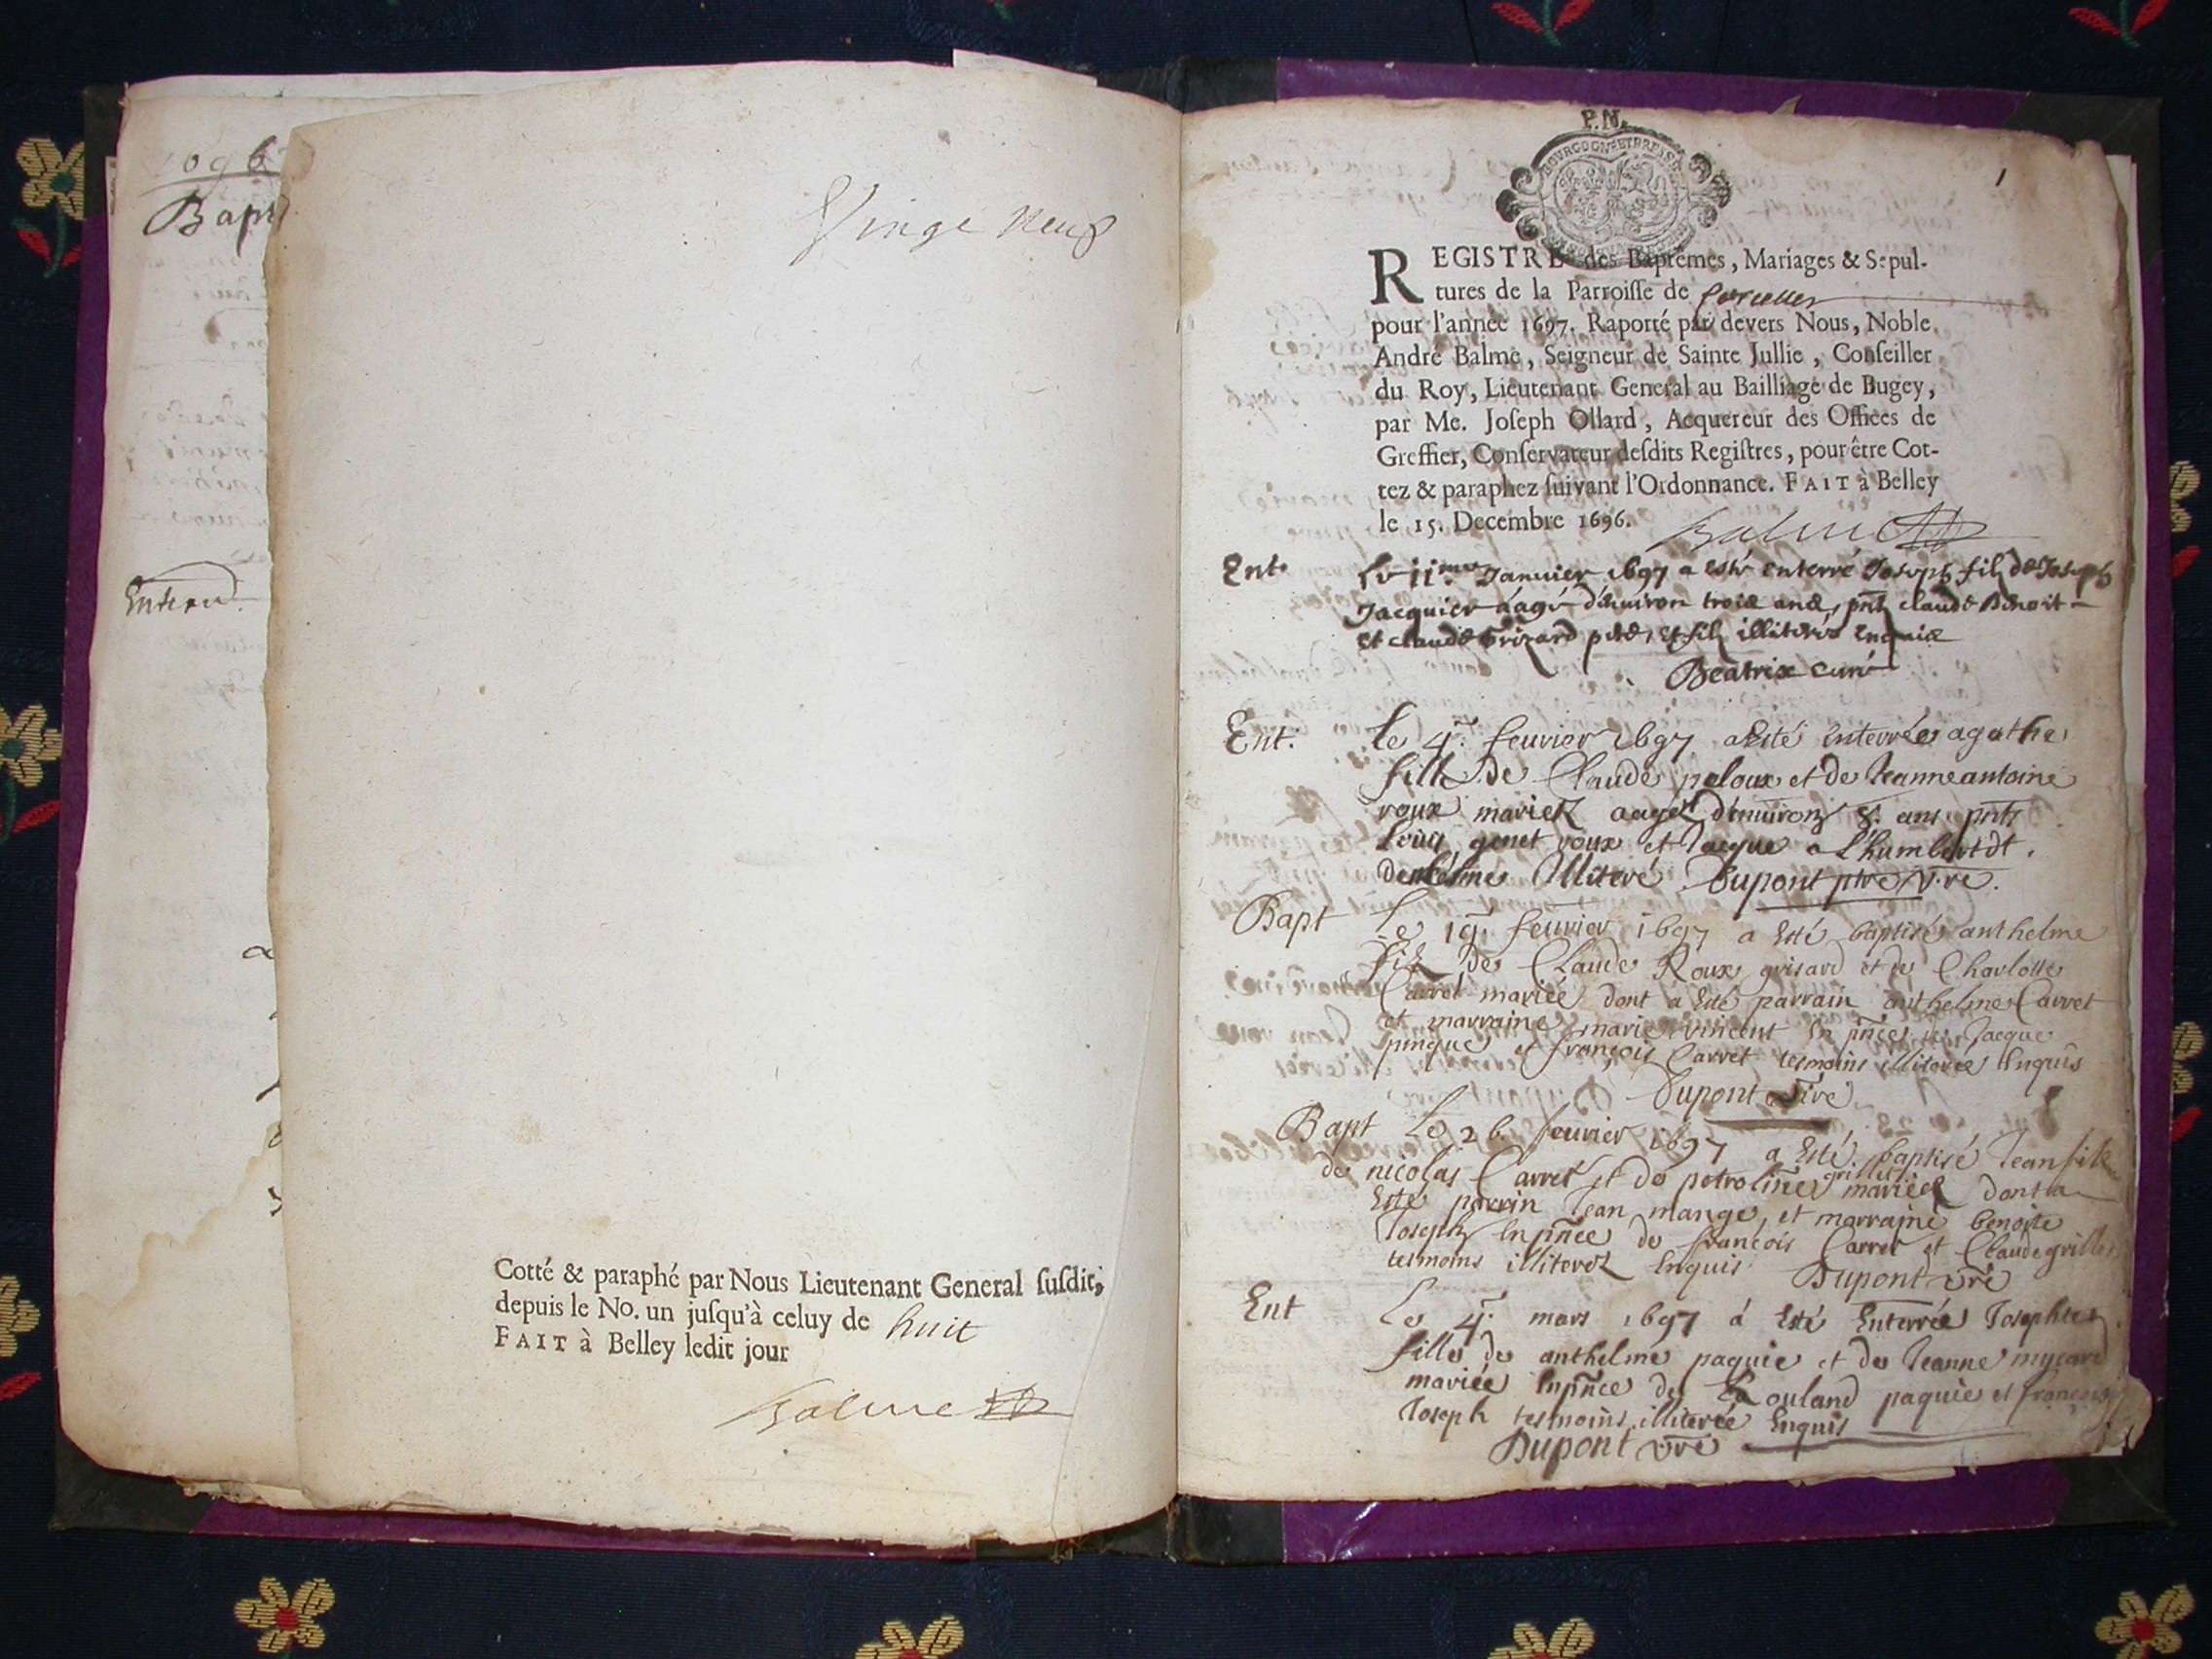 1696
Bapt
Enterr
Vingt neuf
Cotté & paraphé par Nous Lieutenant General ſuſdit,
depuis le No. un juſqu'à celuy de huit
FAIT à Belley ledit jour
Balme
P.N.
BOURGOGNE ET BRESSE
1
REGISTRE des Baptêmes, Mariages & Sepul-
tures de la Parroiſſe de
pour l'année 1697. Raporté par devers Nous, Noble
André Balme, Seigneur de Sainte Jullie, Conſeiller
du Roy, Lieutenant General au Bailliage de Bugey,
par Me. Joſeph Ollard, Acquereur des Offices de
Greffier, Conſervateur deſdits Regiſtres, pour être Cot-
tez & paraphez ſuivant l'Ordonnance. FAIT à Belley
le 15. Decembre 1696. Balme
Ent. Le 11me Januier 1697 a esté enterré Joseph fils de Joseph
Jacquier aagé d'enuiron trois ans, pnts claude Benoit
et claude Grizard illiterés enquis
Beatrix curé
Ent. Le 4. feurier 1697 a esté enterrée agathe
fille de Claude peloux et de Jeanne antoine
roux mariez aagée d'enuiron 8. ans pnts
Louis genet roux et Jacque
illiteré Dupont ptre v.re.
Bapt Le 19. feurier 1697 a esté baptisé anthelme
fils de Claude Roux grisard et de Charlotte
Carret mariée dont a esté parrain anthelme Carret
et marraine marie vincent en pnce de Jacque
pingue et françois Carret tesmoins illiteree Enquis
Dupont vre
Bapt Le 26. feurier 1697 a esté baptisé Jean fils
de nicolas Carret et de petroline grillet mariez dont a
esté parrin Jean mange, et marraine benoite
Joseph en pnce de françois Carret et Claude grillet
tesmoins illiterez Enquis Dupont vre
Ent Le 4. mars 1697 a esté Enterrée Josephte
fille de anthelme paquie et de Jeanne
mariée en pnce de Rouland paquie et françois
Joseph tesmoins illiterée Enquis
Dupont vre